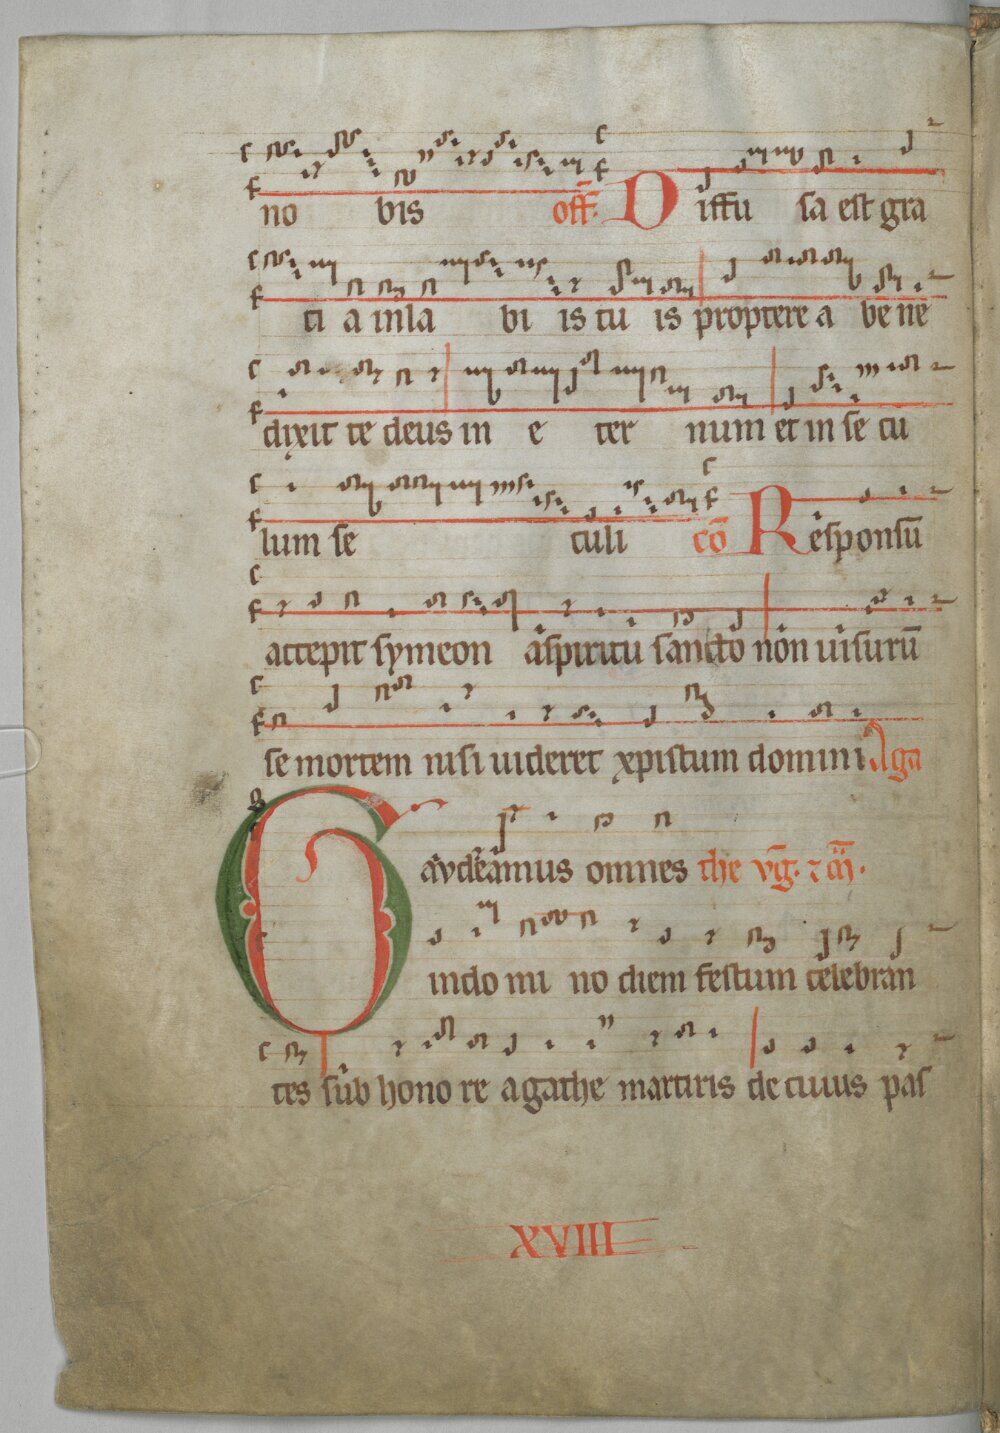 no bis off. Diffu sa est gra
ti a in la bi is tu is propterea be ne
dixit te deus in e ter num et in se cu
lum se culi cō Responsū
accepit symeon aspiritu sancto non uisurū
se mortem nisi uideret xpistum domini Aga
Gavdeamus omnes the vg. ⁊ m̄.
indo mi no diem festum celebran
tes sub hono re agathe martiris de cuius pas
XVIII